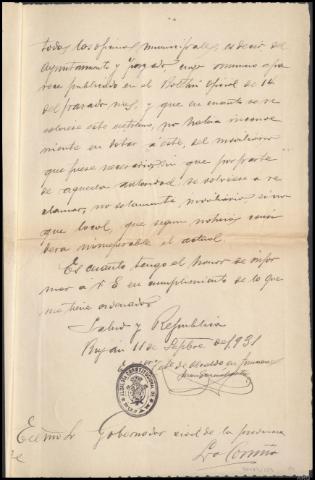 todas las oficinas municipales, es decir del
Ayuntamiento y Juzgado, cuyo anuncio apa
rece publicado en el Boletin Oficial de 14
del pasado mes, y que en cuanto se re-
solviese este extremo, no habia inconve
niente en dotar a éste, del mobiliario
que fuese necesario, sin que por parte
de aquella autoridad se volviese a re
clamar, no solamente mobiliario, sino
que local, que segun noticias consi
dera inmejorable el actual
Es cuanto tengo el honor de infor
mar a V E en cumplimiento de lo que
me tiene ordenado
Salud y Republica
Buján 11 de Sepbre de 1931
Alcalde en funciones
Excmo Sr Gobernador civil de la provincia
de
La Coruña